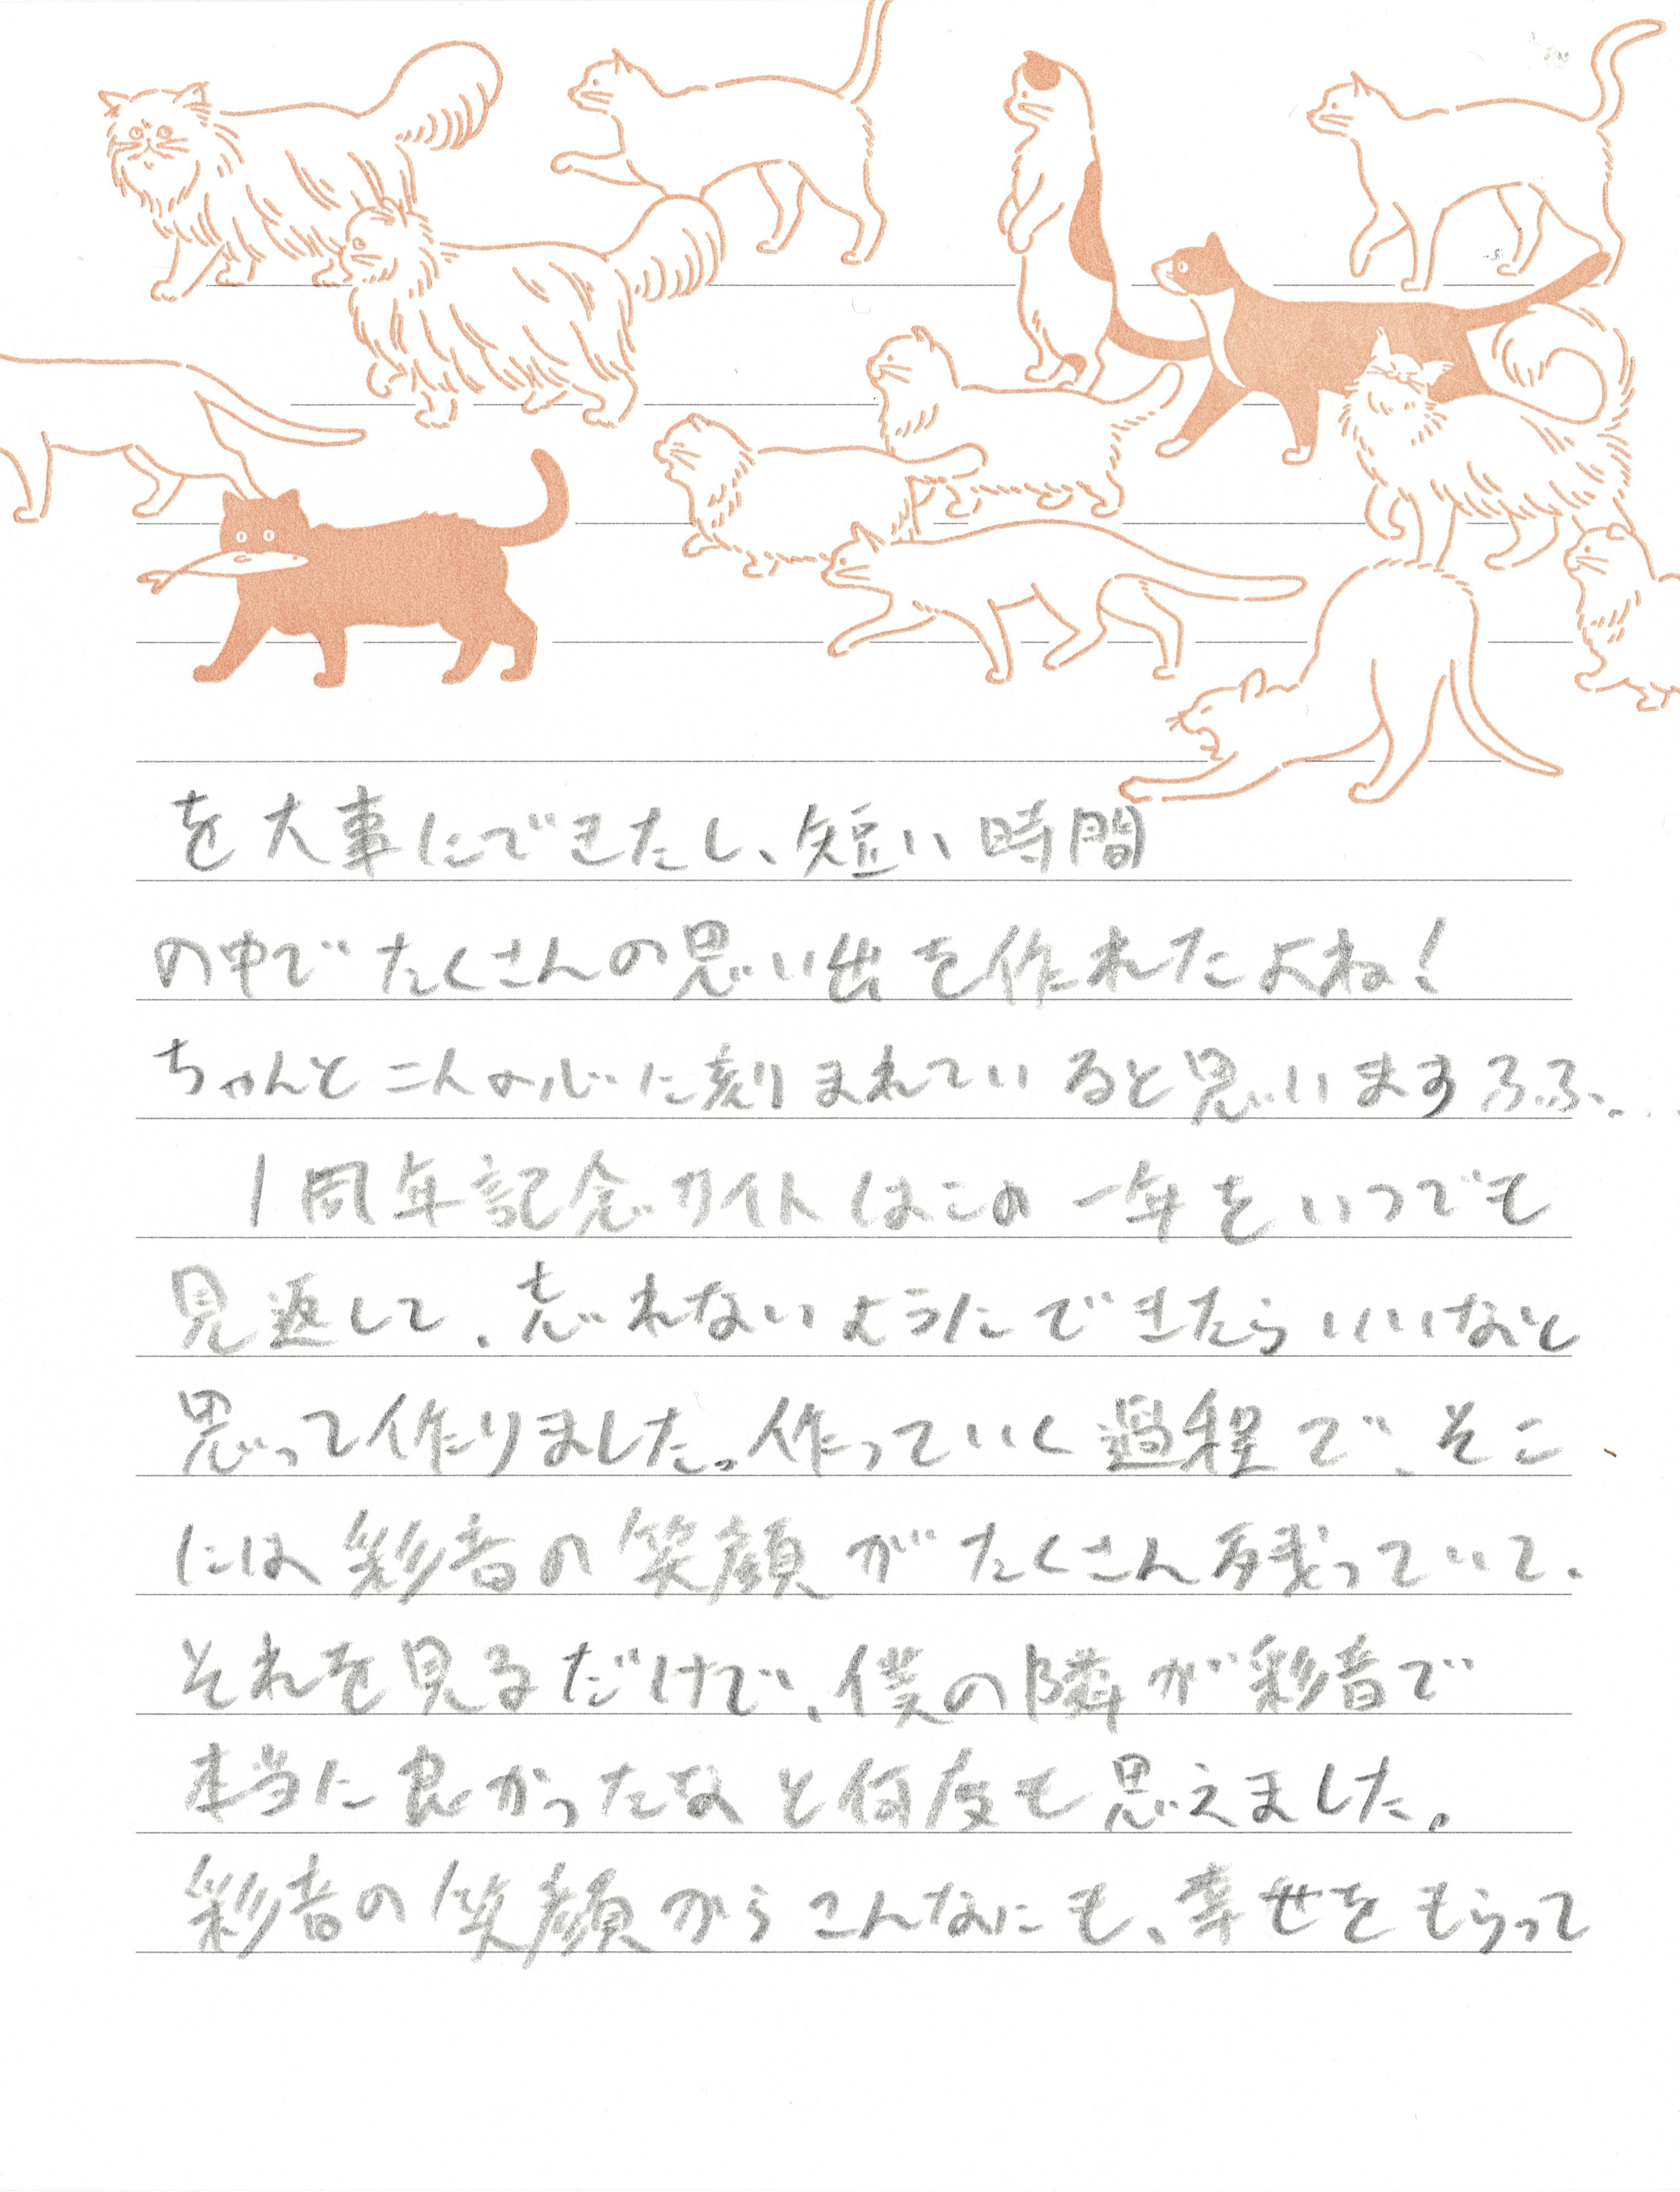 を大事にできたし、短い時間
の中でたくさんの思い出を作れたよね!
ちゃんと二人の心に刻まれていると思いますふふ....
1周年記念サイトはこの一年をいつでも
見返して、忘れないようにできたらいいなと
思って作りました。作っていく過程で、そこ
には彩音の笑顔がたくさん残っていて、
それを見るだけで、僕の隣が彩音で
本当に良かったなと何度も思えました。
彩音の笑顔からこんなにも、幸せをもらって